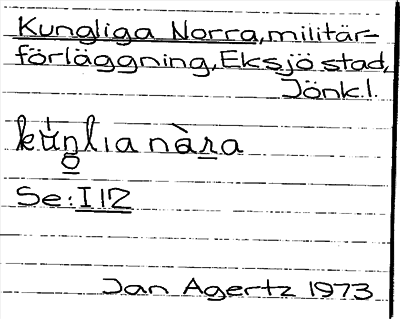 Kungliga Norra, militär=
förläggning, Eksjö stad,
Jönk.l.
kún̥lıa nàra
Se: I 12
Jan Agertz 1973